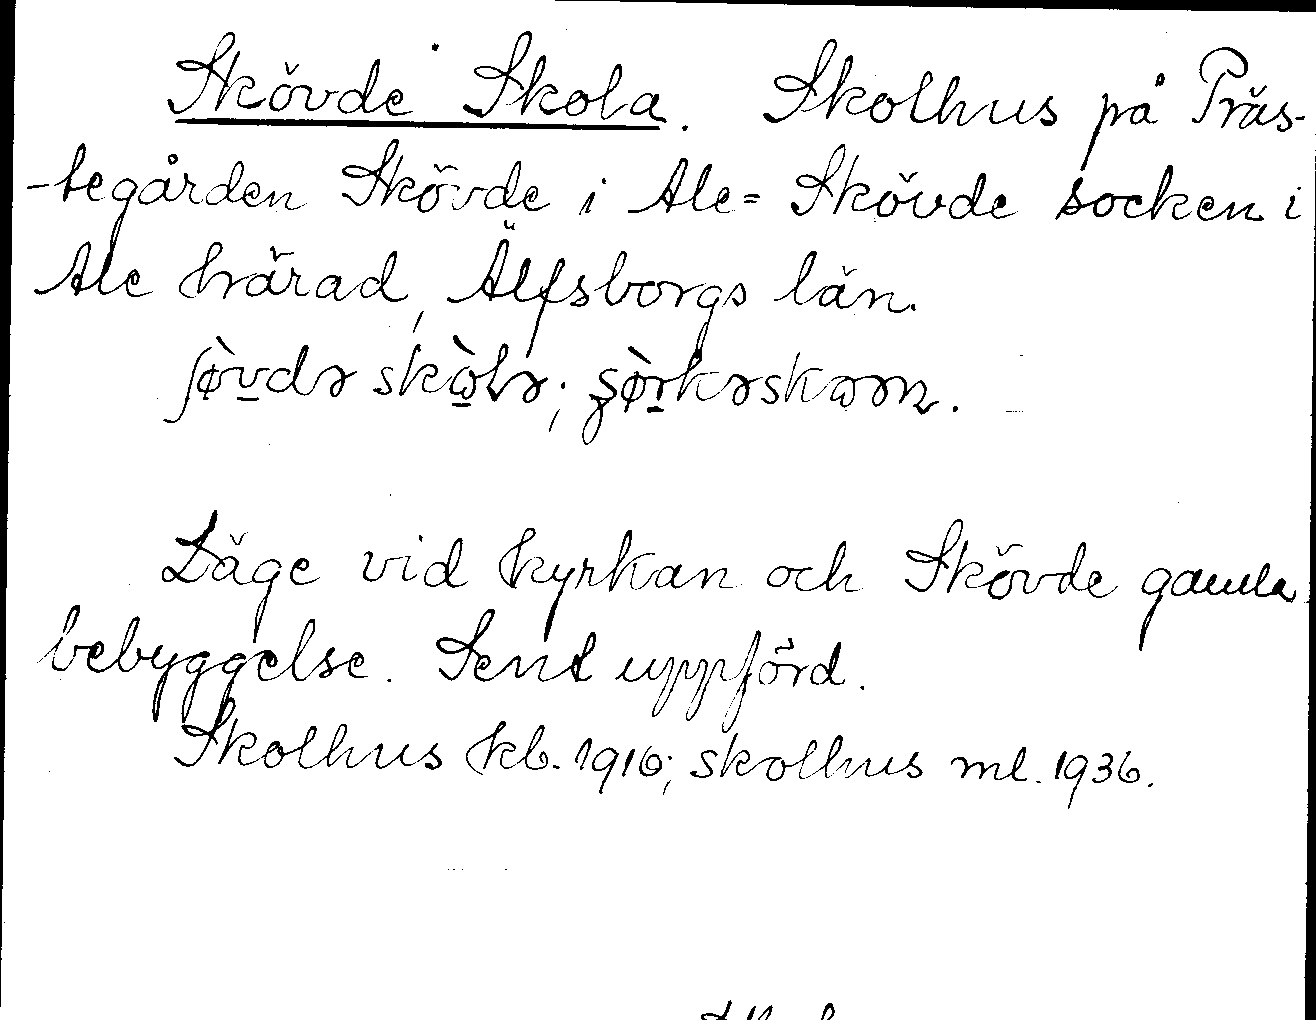 Skövde Skola. Skolhus på Präs-
-tegården Skövde i Ale=Skövde socken i
Ale härad, Älfsborgs län.
Läge vid kyrkan och Skövde gamla
bebyggelse. Sent uppförd.
Skolhus kb. 1916; skolhus ml. 1936.